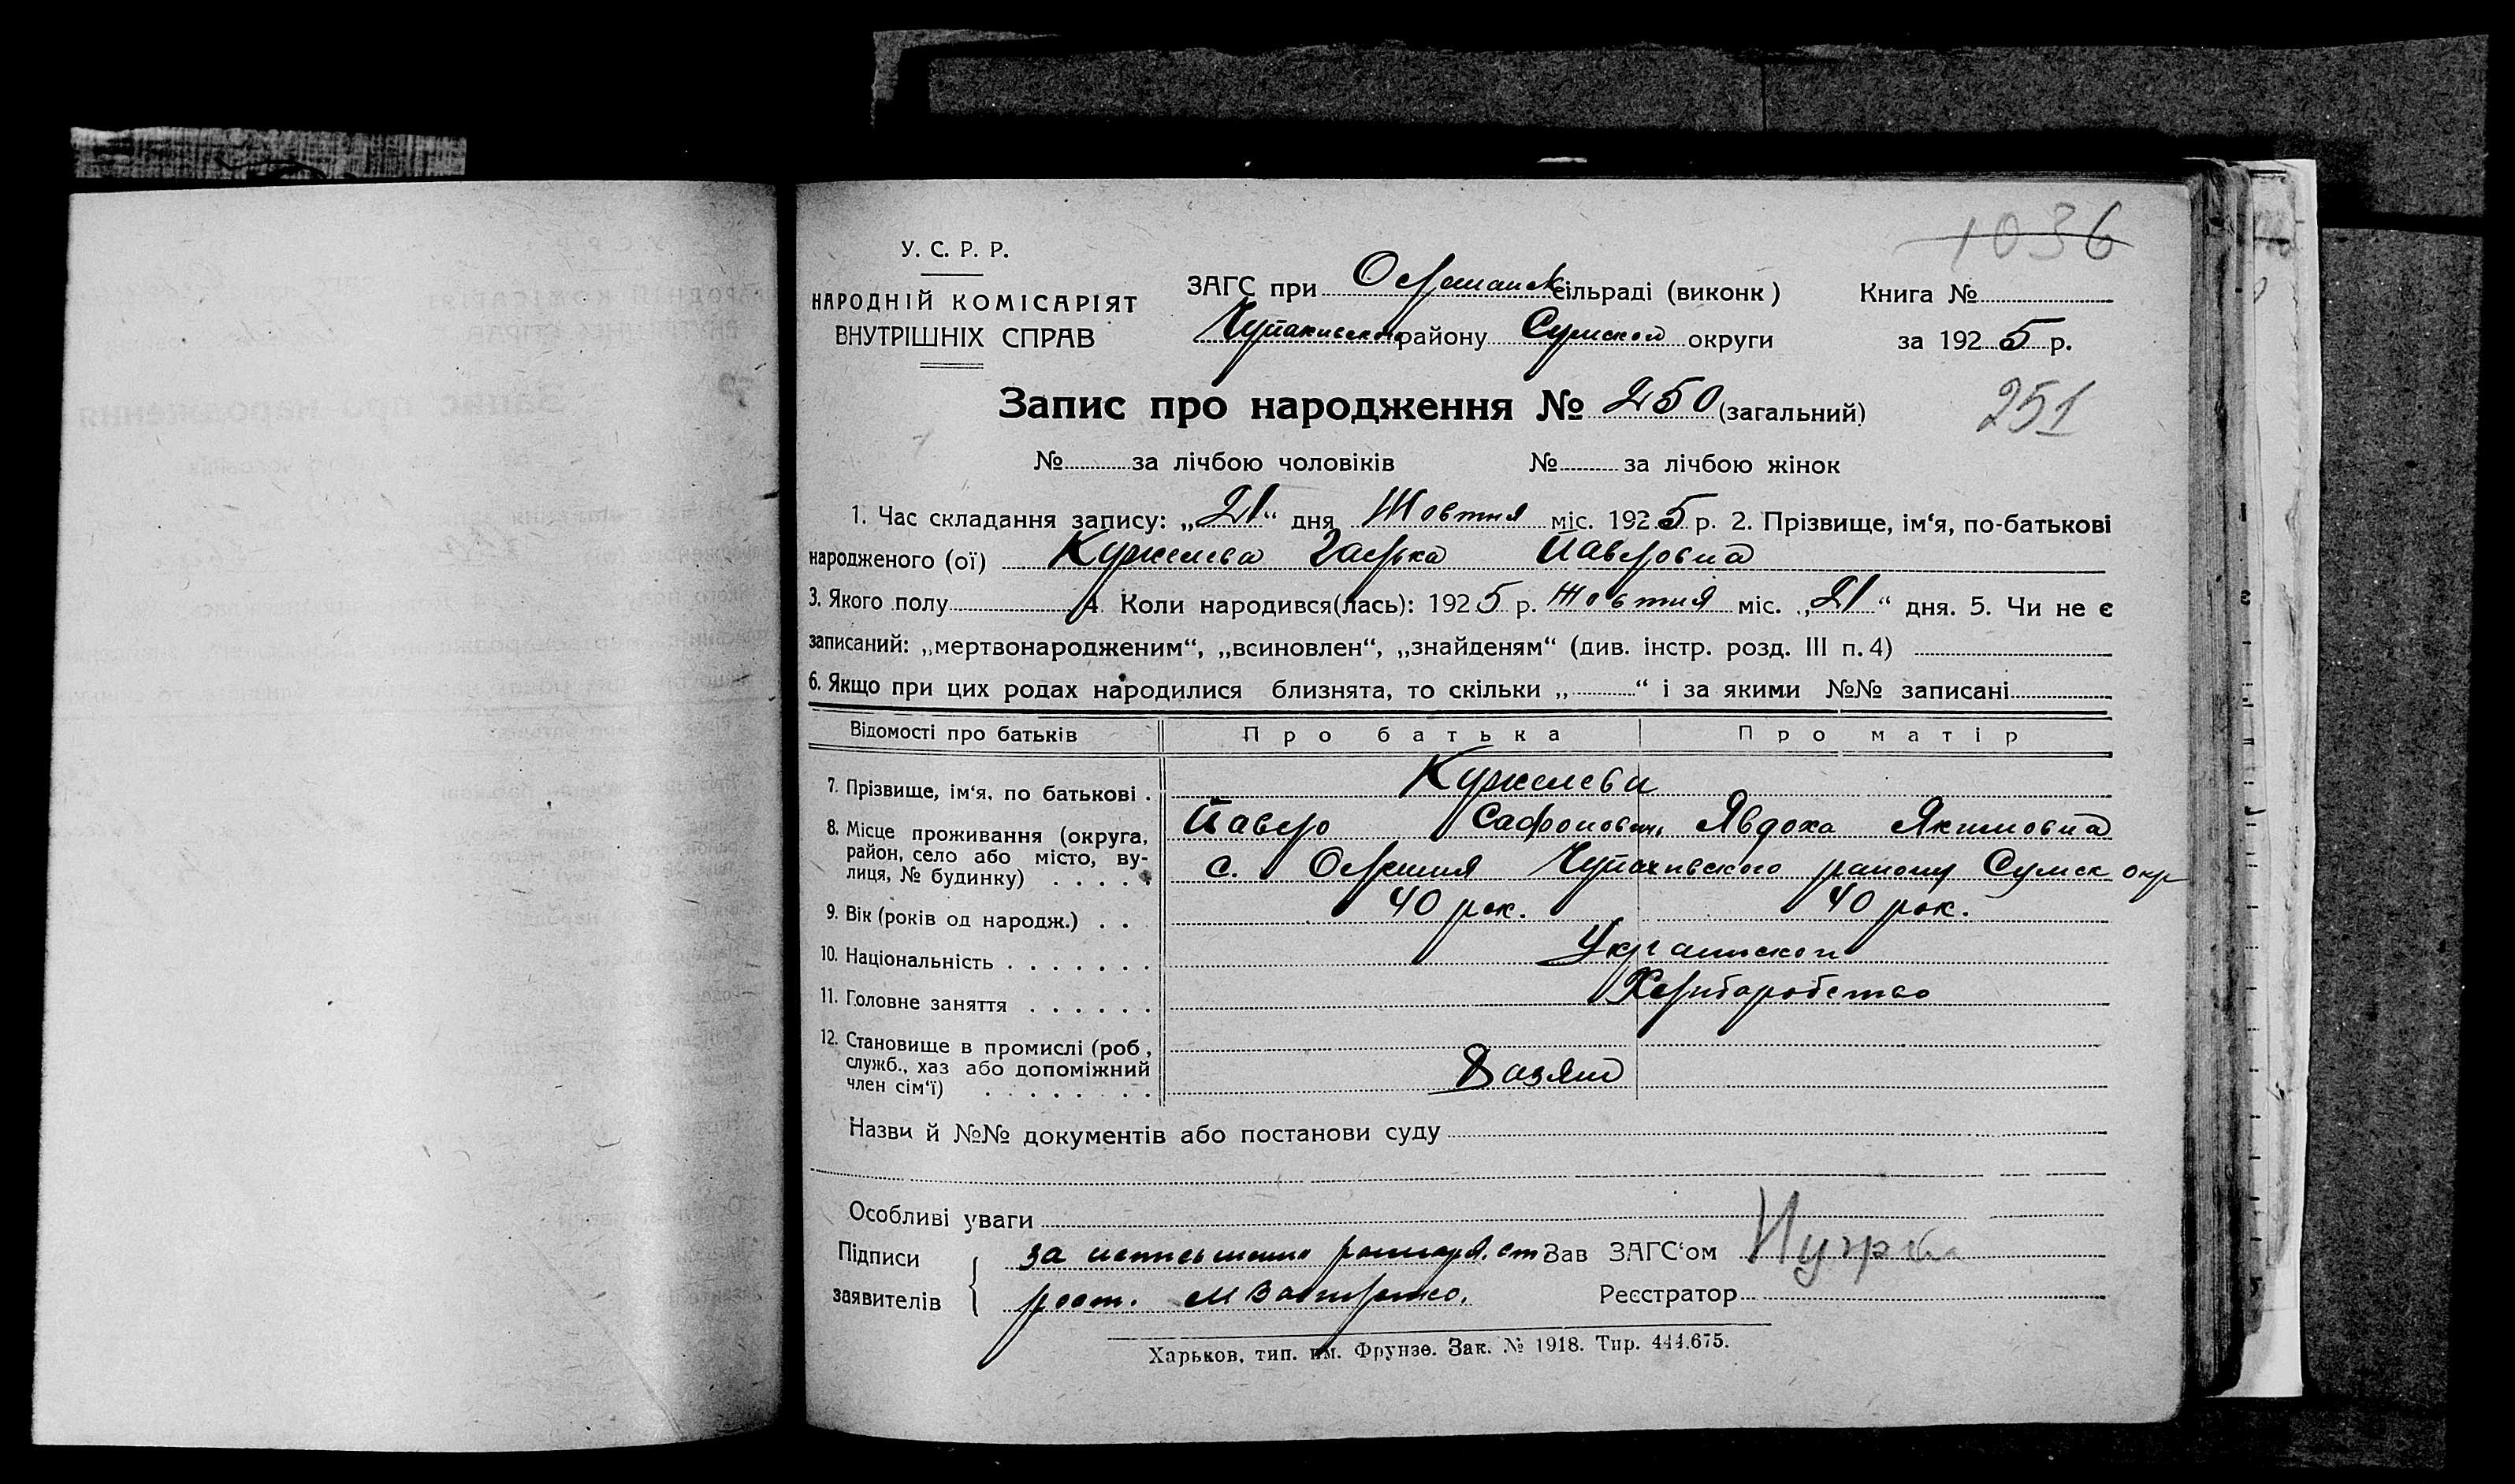 1036
У. С. Р. Р.
НАРОДНІЙ КОМІСАРІЯТ
ВНУТРІШНІХ СПРАВ
ЗАГС при сільраді (виконк)
Чупахивского району Сумской округи
Книга №
за 1925 р.
Запис про народження № 250 (загальний)
251
№ за лічбою чоловіків № за лічбою жінок
1. Час складання запису: „21“ дня Жовтня міс. 1925 р. 2. Прізвище, ім‘я, по-батькові
народженого (ої) Кужелева Павловна
3. Якого полу 4. Коли народився(лась): 1925 р. Жовтня міс. „21“ дня. 5. Чи не є
записаний: „мертвонародженим“, „всиновлен“, „знайденям“ (див. інстр. розд. III п. 4)
6. Якщо при цих родах народилися близнята, то скільки „ “ і за якими №№ записані
Відомості про батьків Про батька Про матір
7. Прізвище, ім‘я, по батькові . Кужелева
8. Місце проживання (округа, Павло Сафронович Явдоха Якимовна
район, село або місто, ву-
лиця, № будинку) . . . . . с. Олешня Чупахивского району Сумск окр
9. Вік (років од народж.) . . 40 рок. 40 рок.
10. Національність . . . . . . . Украинской
11. Головне заняття . . . . . . Хлиборобство
12. Становище в промислі (роб,
служб., хаз або допоміжний Хазяин
член сім‘ї) . . . . . . . .
Назви й №№ документів або постанови суду
Особливі уваги
Підписи за Зав ЗАГС‘ом
заявителів рост. М Реєстратор
Харьков, тип. им. Фрунзе. Зак. № 1918. Тир. 444.675.